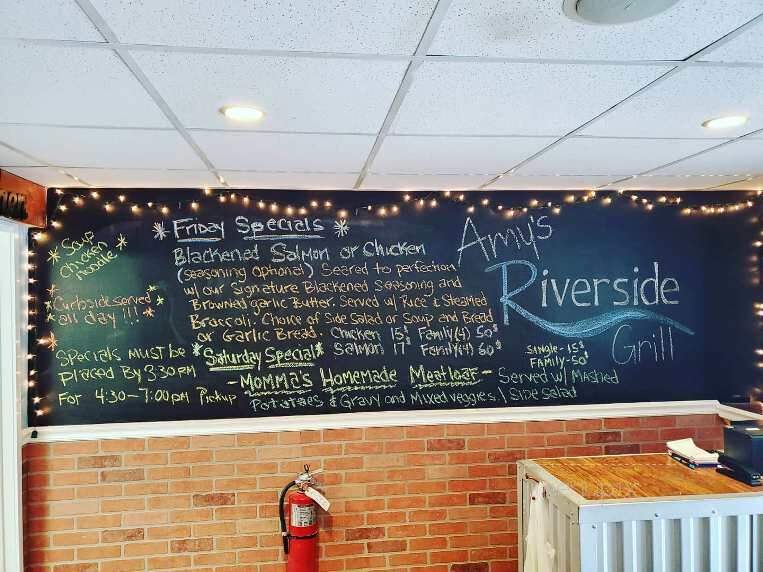 * Soup *
chicken
noodle
* Curbside served *
* all day !!! *
Specials must be
placed By 3:30 PM
For 4:30-7:00pm Pickup
* Friday Specials *
Blackened Salmon or Chicken
(seasoning optional) Seared to perfection
w/ our Signature Blackened Seasoning and
Browned garlic Butter. Served w/ Rice & Steamed
Broccoli. Choice of Side Salad or Soup and Bread
or Garlic Bread. Chicken 15$ Family(4) 50$
Salmon 17$ Family(4) 60$
* Saturday Special *
- Momma's Homemade Meatloaf - Served w/ Mashed
Potatoes & Gravy and Mixed veggies \ Side Salad
Single - 15$
Family - 50$
Amy's
Riverside
Grill